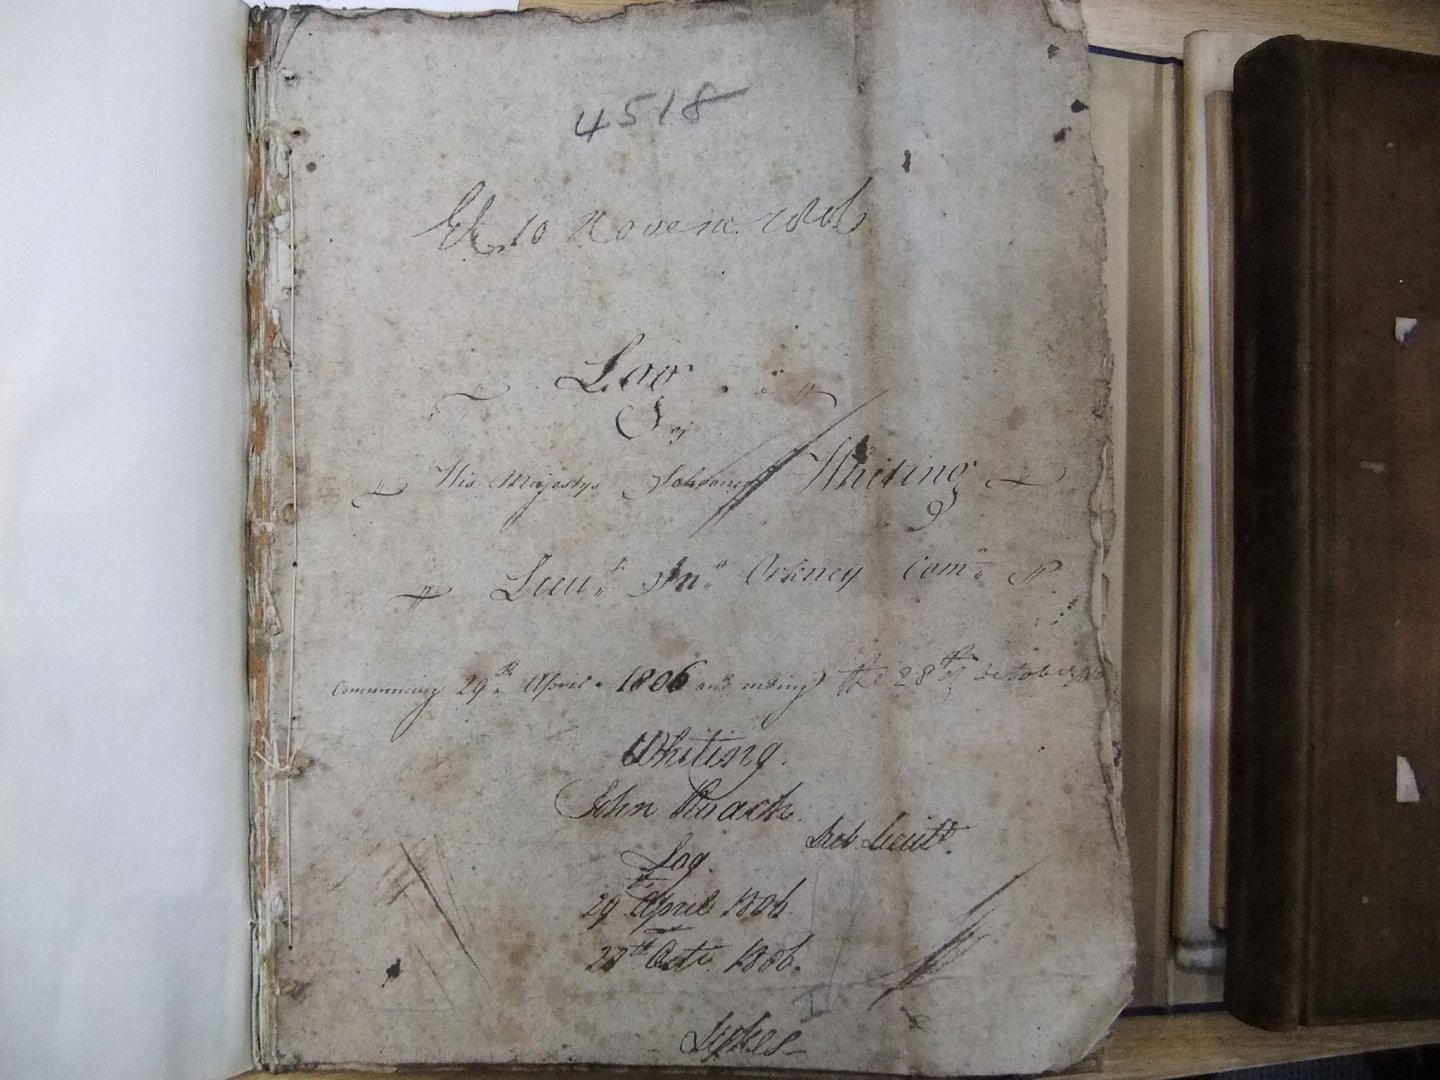 4518
10 Novem 1806
Log
of
His Majestys Schooner Whiting
Lieu.t Jn.o Orkney Com.n
Commencing 29th April 1806 and ending the 28th of October
Whiting.
John Roach.
Sub. Lieutt.
Log.
29 April 1806.
28th Octr. 1806.
Sykes